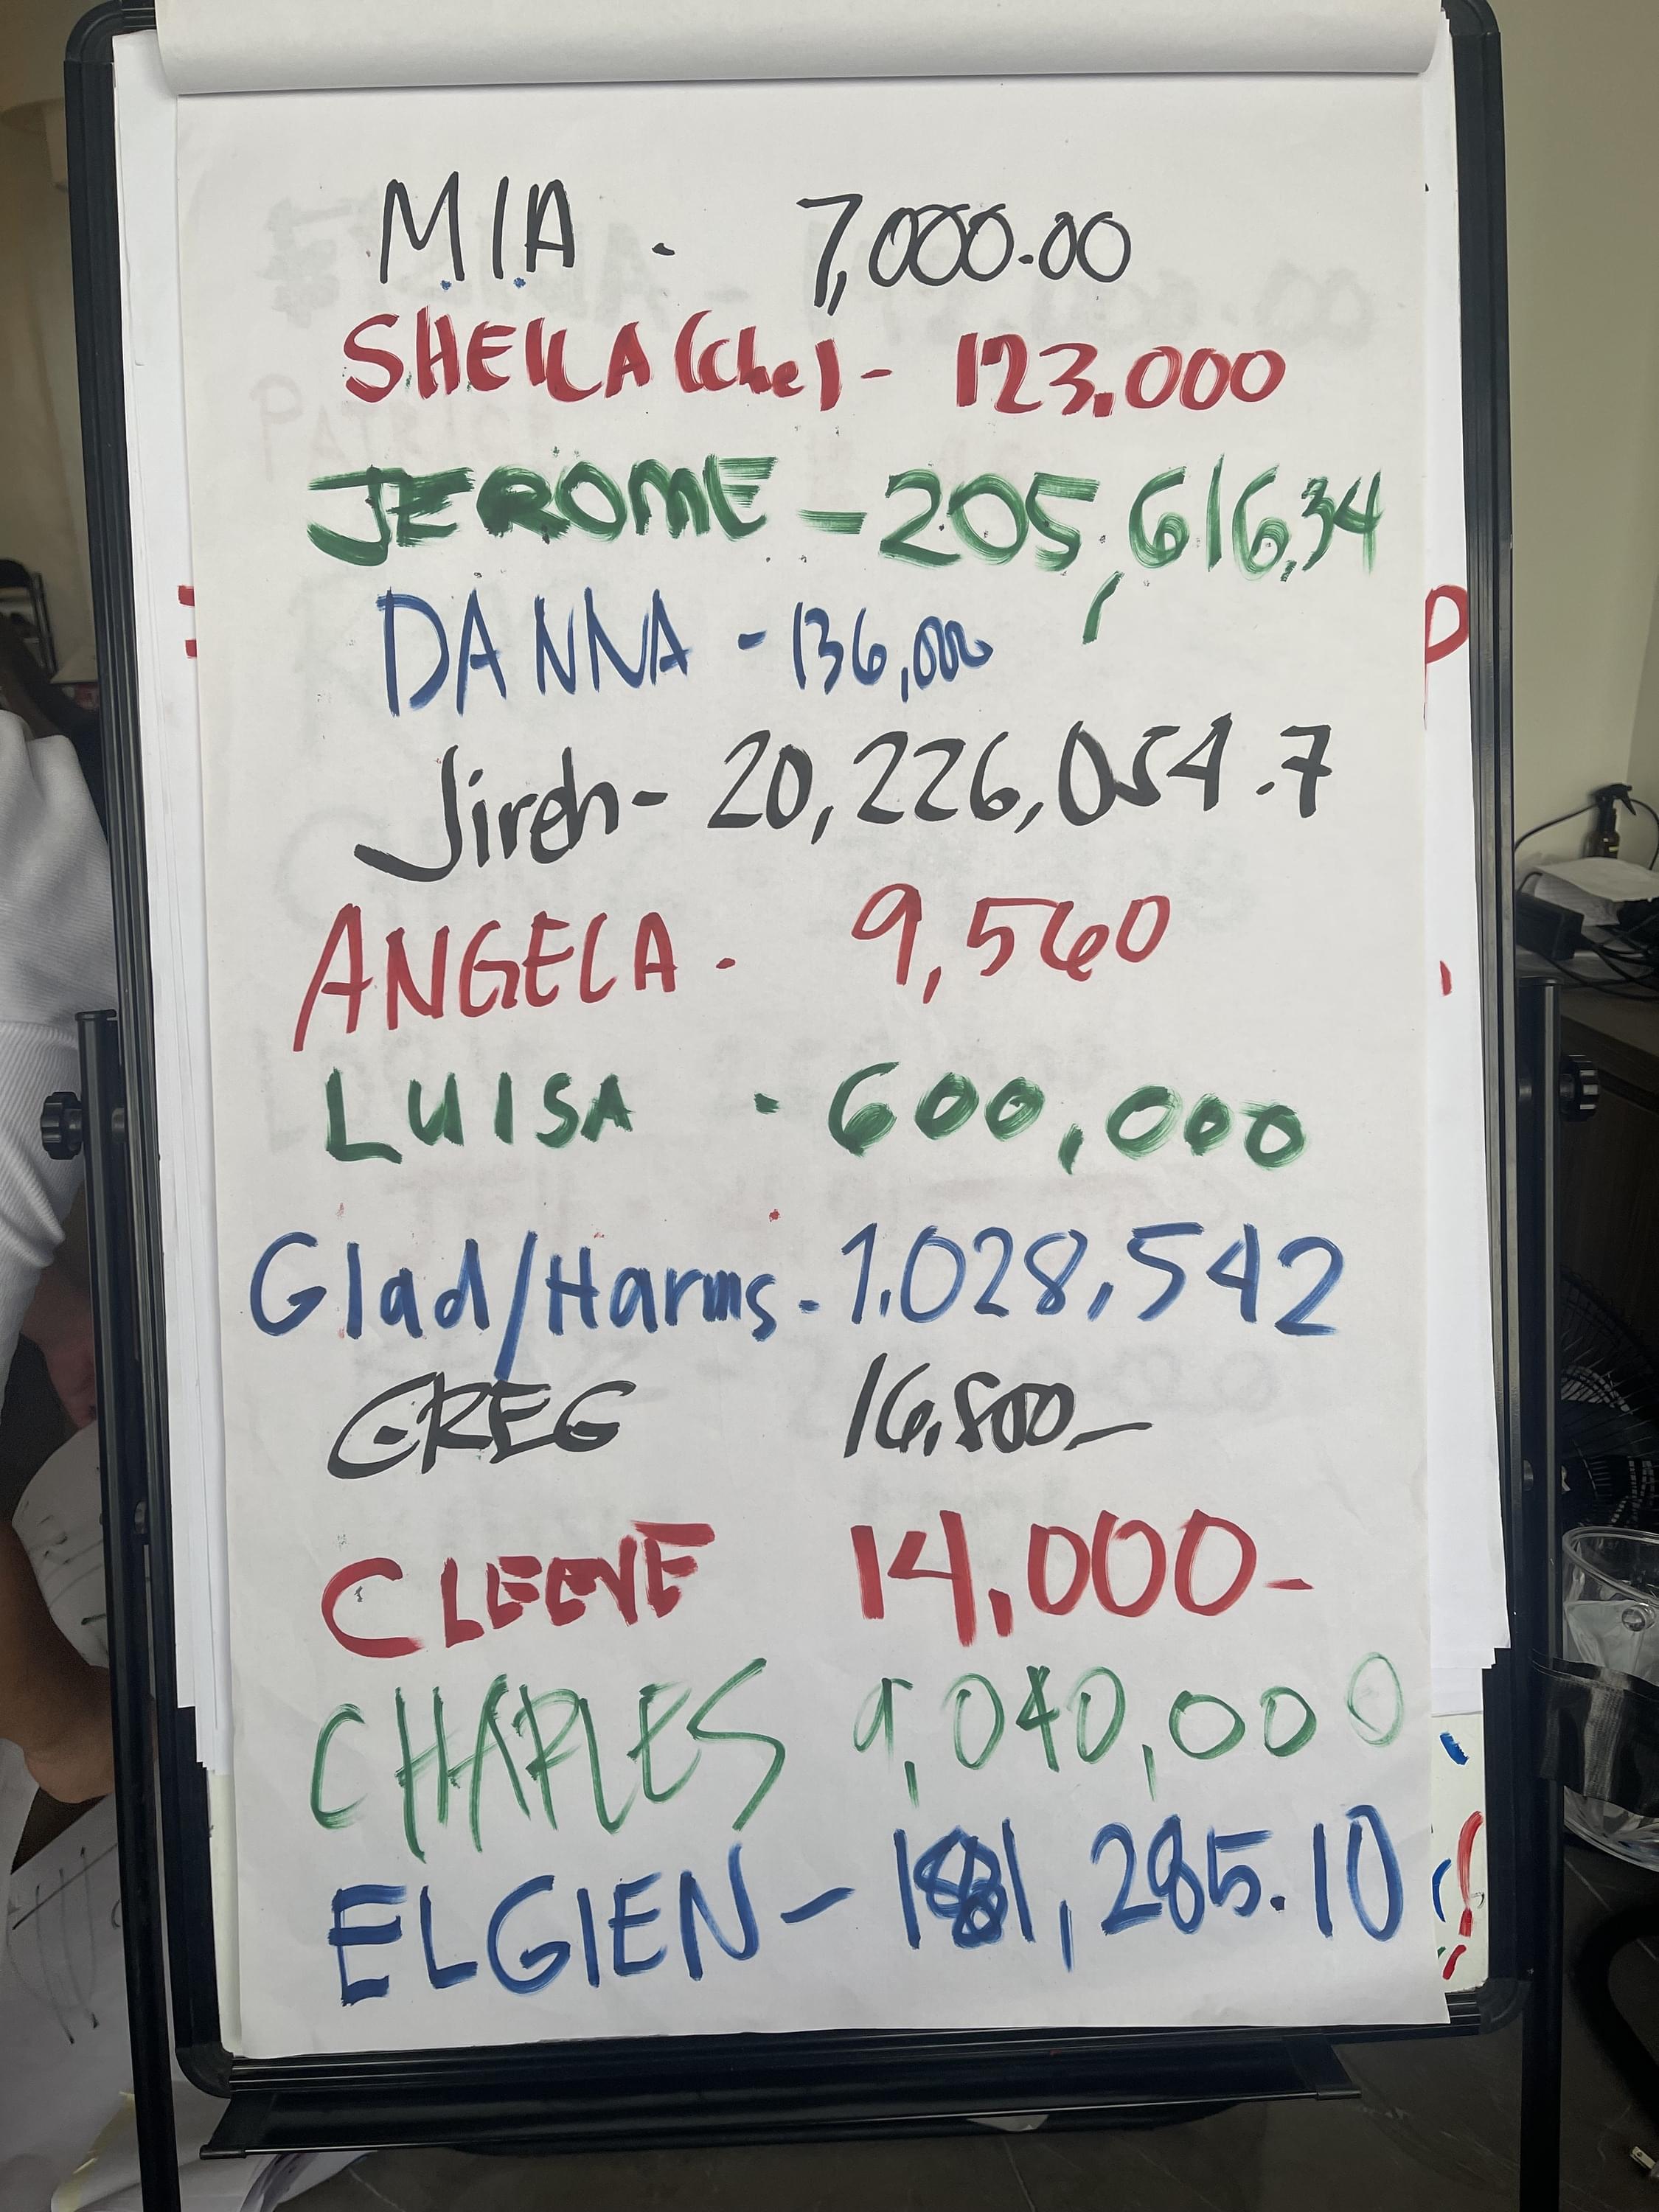 MIA - 7,000.00
SHEILA (che) - 123.000
JEROME - 205,616.34
DANNA - 136,000
Jireh - 20,226,054.7
ANGELA - 9,560
LUISA - 600,000
Glad/Harms - 1,028,542
GREG 16,800-
CLEEVE 14,000-
CHARLES 9,040,000
ELGIEN - 181,285.10